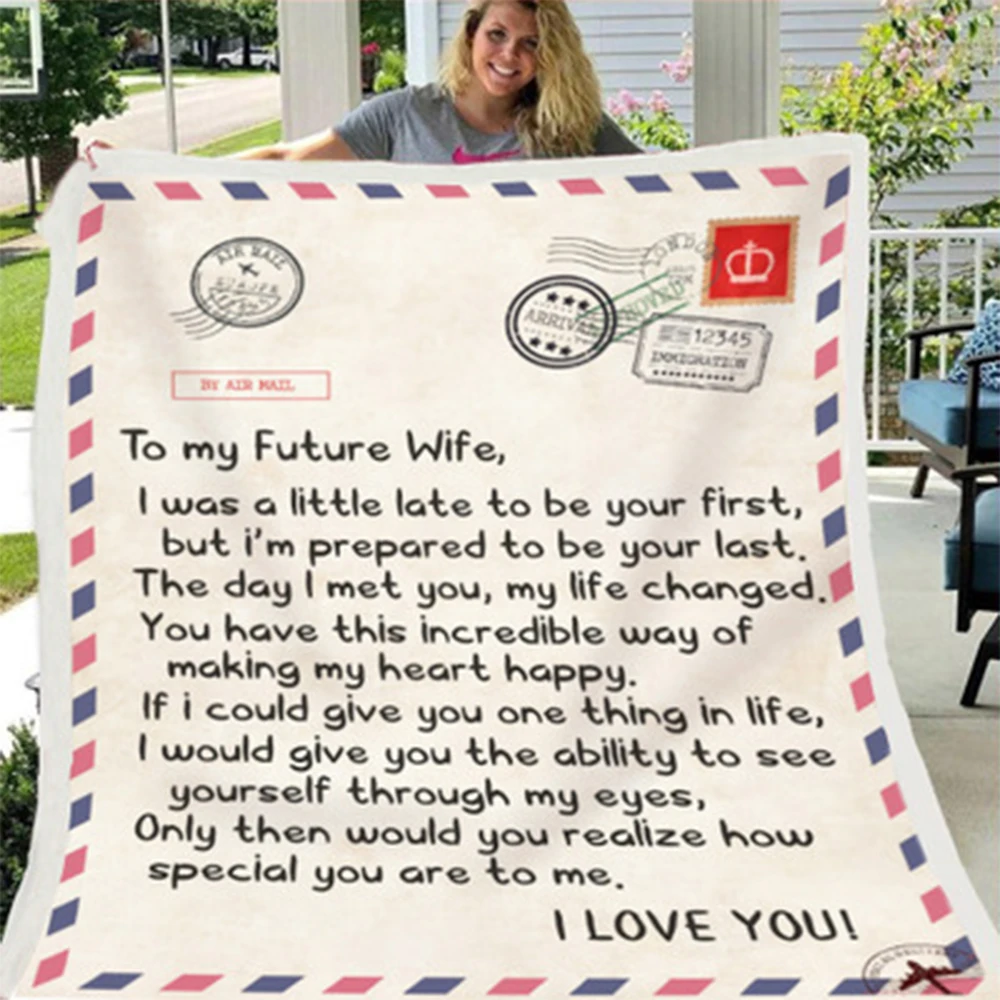 AIR MAIL
LONDON
ARRIVAL
12345
IMMIGRATION
BY AIR MAIL
To my Future Wife,
I was a little late to be your first,
but i'm prepared to be your last.
The day I met you, my life changed.
You have this incredible way of
making my heart happy.
If i could give you one thing in life,
I would give you the ability to see
yourself through my eyes,
Only then would you realize how
special you are to me.
I LOVE YOU!